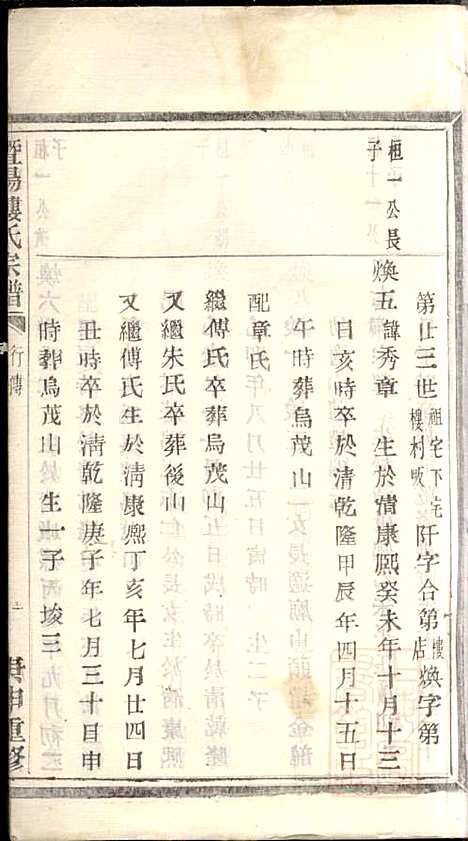 第廿三世祖宅下宅樓村坂阡字合第樓店煥字第
桓一公長子
煥五諱秀章 生於清康熙癸未年十月十三
日亥時卒於清乾隆甲辰年四月十五日
午時葬烏茂山
配章氏
繼傅氏卒葬烏茂山
又繼朱氏卒葬後山
又繼傅氏生於清康熙丁亥年七月廿四日
丑時卒於清乾隆庚子年七月三十日申
時葬烏茂山 生一子 埈三
暨陽樓氏宗譜
行傳
庚申重修